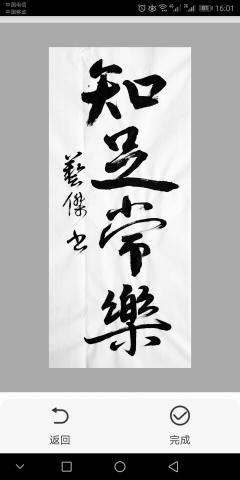 中国电信
中国移动
16:01
知足常樂
藝傑书
返回
完成